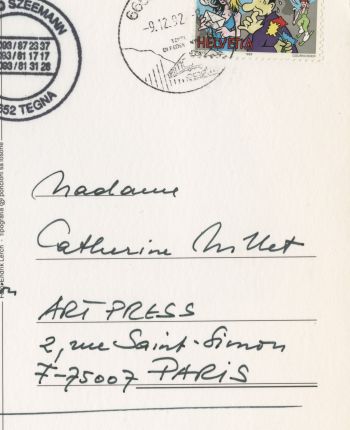 SZEEMANN
093/87 23 37
093/81 17 17
093/81 31 28
TEGNA
-9.12.92
HELVETIA
Madame
Catherine Millet
ART PRESS
2, rue Saint-Simon
F-75007 PARIS